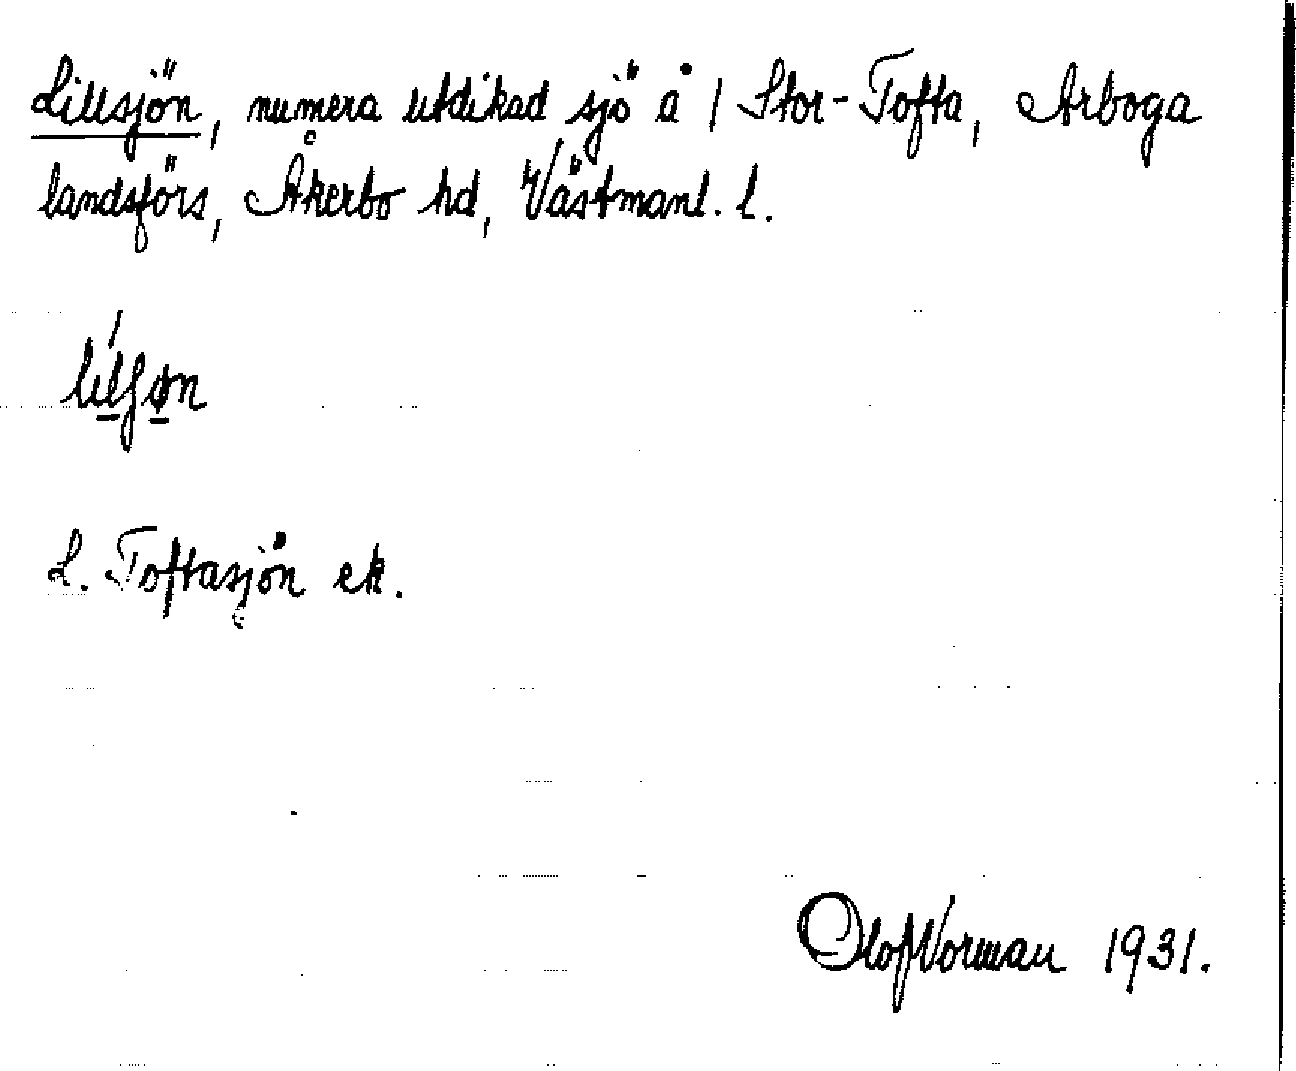 Lillsjön, numera utdikad sjö å / Stor-Tofta, Arboga
landsförs, Åkerbo hd, Västmanl. l.
L. Toftasjön ek.
Olof Norman 1931.